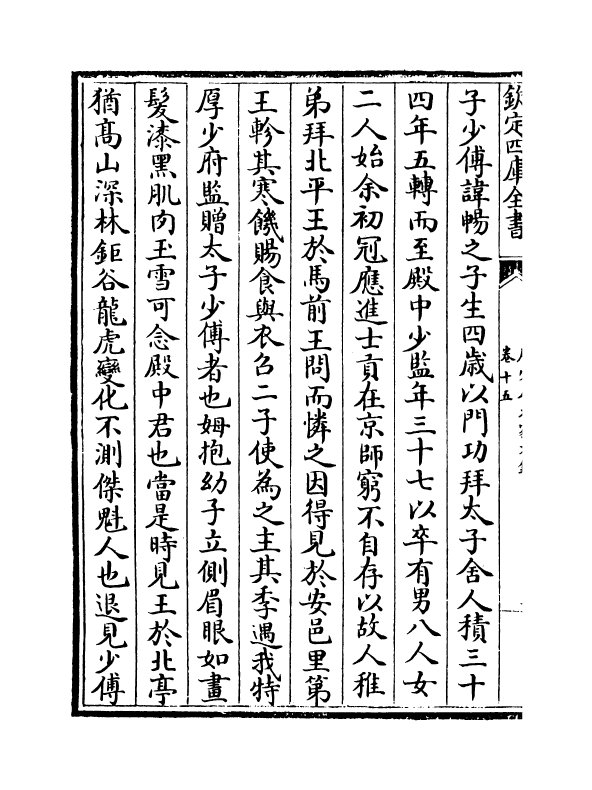 欽定四庫全書
卷十五
子少傅諱暢之子生四歲以門功拜太子舍人積三十
四年五轉而至殿中少監年三十七以卒有男八人女
二人始余初冠應進士貢在京師窮不自存以故人稚
弟拜北平王於馬前王問而憐之因得見於安邑里第
王軫其寒饑賜食與衣召二子使為之主其季遇我特
厚少府監贈太子少傅者也姆抱幼子立側眉眼如畫
髮漆黑肌肉玉雪可念殿中君也當是時見王於北亭
猶髙山深林鉅谷龍虎變化不測傑魁人也退見少傅